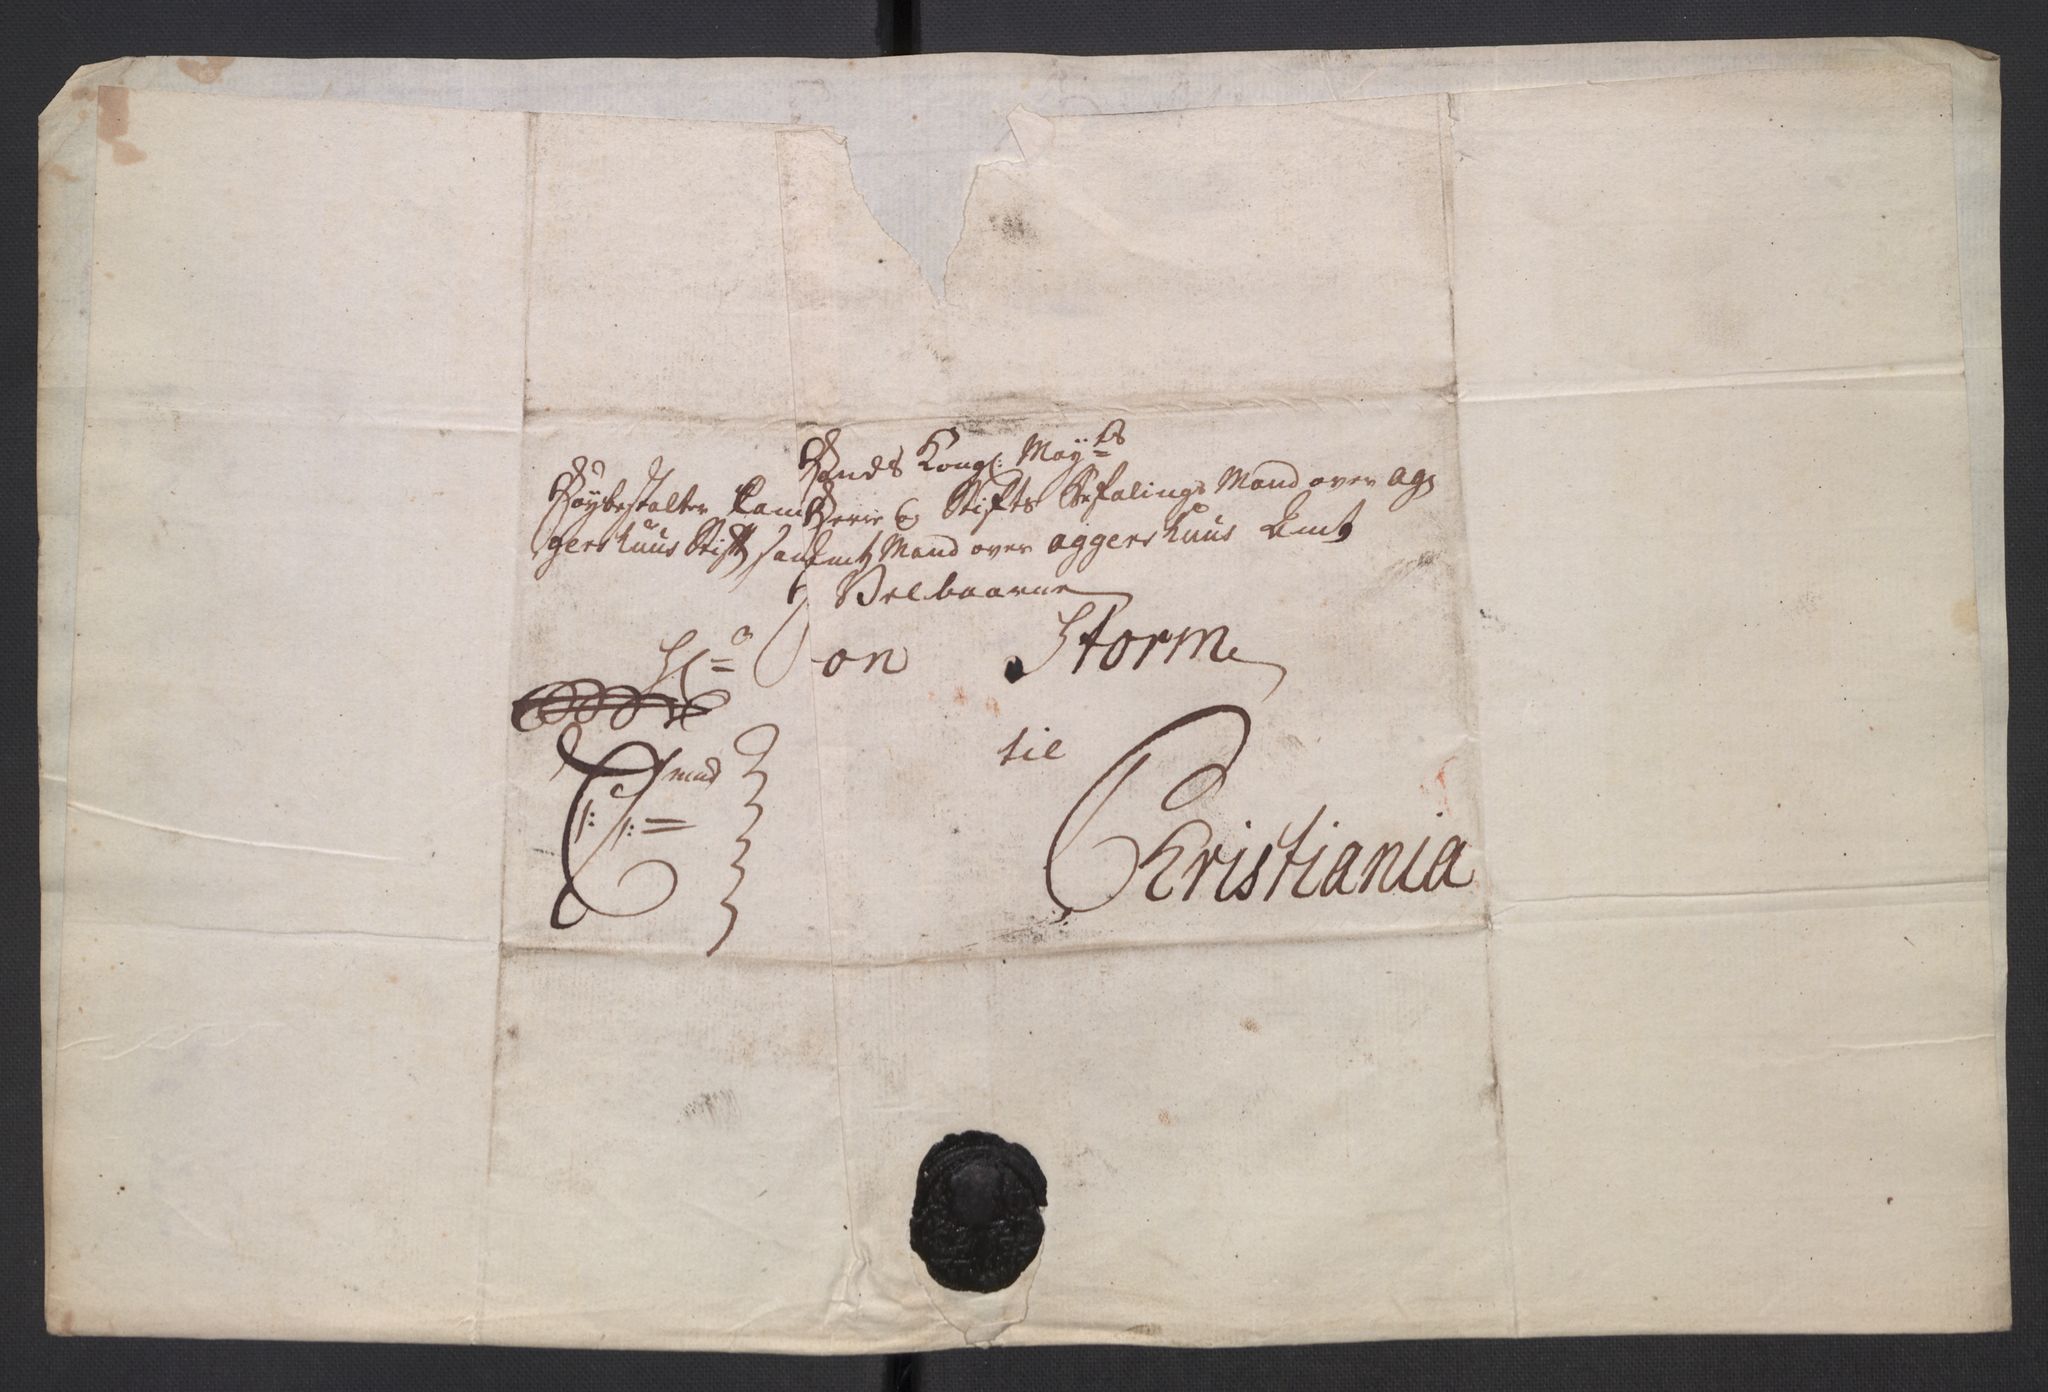 Hands Kongl: May:ts
Høybestalter CamHerre og Stifts Befalings Mand over Ag¬
gershuus Stift sambt Amt Mand over aggershuus Amt
Velbaarne
Hr von Storm
til
Christiania